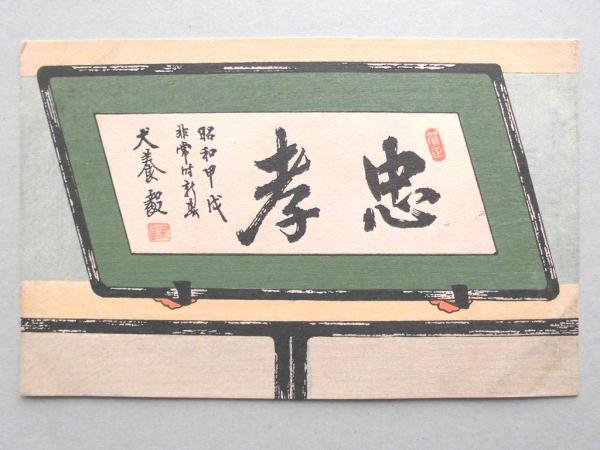 忠孝
昭和甲戌
非常時新春
犬養毅